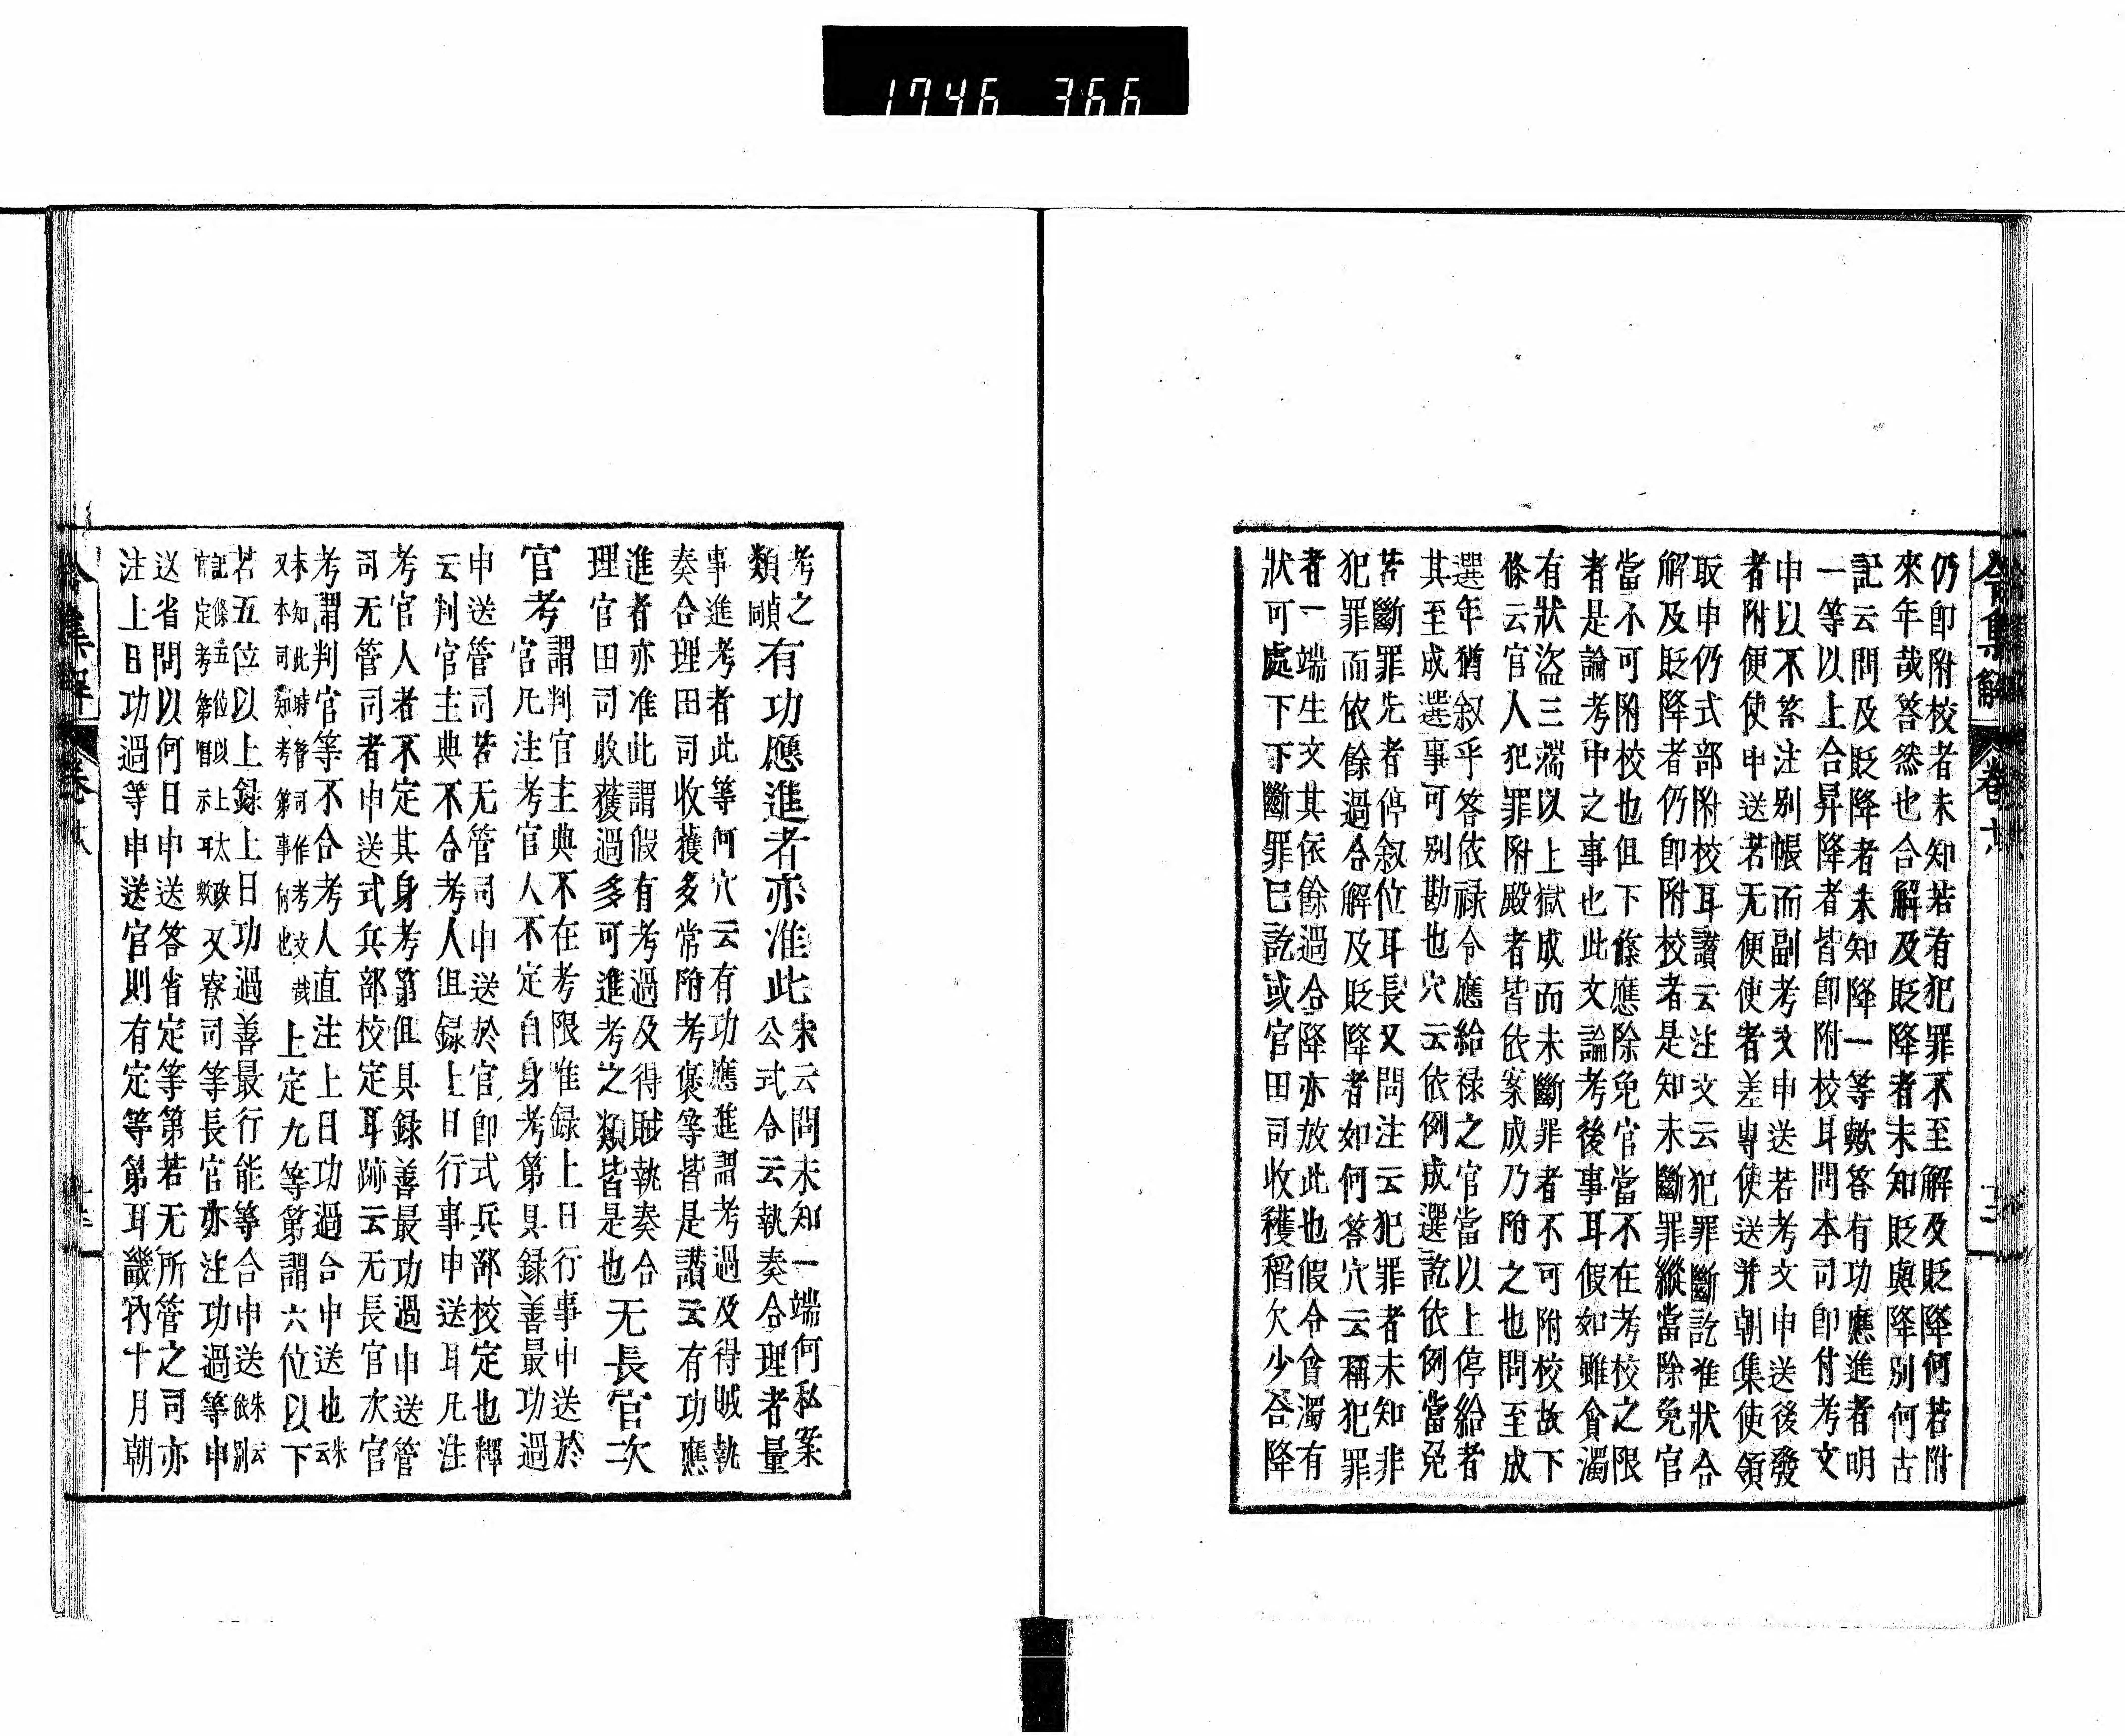 1746 366
令集解 卷
仍即附校者未知若有犯罪不至解及貶降何若附
來年哉答然也合解及貶降者未知貶與降別何古
記云問及貶降者未知降一等歟答有功應進者明
一等以上合昇降者皆即附校耳問本司即付考文
申以不答注別帳而副考文申送若考文申送後發
者附便使申送若无便使者差專使送并朝集使領
取申仍式部附校耳讃云注文云犯罪斷訖准狀合
解及貶降者仍即附校者是知未斷罪縱當除免官
當不可附校也但下條應除免官當不在考校之限
者是論考中之事也此文論考後事耳假如雖貪濁
有狀盜三端以上獄成而未斷罪者不可附校故下
條云官人犯罪附殿者皆依案成乃附之也問至成
選年猶叙乎答依祿令應給祿之官當以上停給者
其至成選事可別勘也穴云依例成選訖依例當免
若斷罪先者停叙位耳長又問注云犯罪者未知非
犯罪而依餘過合解及貶降者如何答穴云稱犯罪
者一端生文其依餘過合降亦放此也假令貪濁有
狀可處下下斷罪已訖或官田司收穫稻欠少合降
考之
類 有功應進者亦准此 朱云問未知一端何私案
公式令云執奏合理者量
事進考者此等何穴云有功應進謂考過及得賊執
奏合理田司收獲多常附考褒等皆是讃云有功應
進者亦准此謂假有考過及得賊執奏合
理官田司收獲過多可進考之類皆是也 无長官次
官考 謂判官主典不在考限唯録上日行事申送於
官凡注考官人不定自身考第具録善最功過
申送管司若无管司申送於官即式兵部校定也釋
云判官主典不合考人但録上日行事申送耳凡注
考官人者不定其身考第但具録善最功過申送管
司无管司者申送式兵部校定耳跡云无長官次官
考謂判官等不合考人直注上日功過合申送也 朱云
未知此時管司作考文哉
又本司知考第事何也 上定九等第謂六位以下
若五位以上録上日功過善最行能等合申送 朱云依別
記條五位以上太政
官定考第唱示耳歟 又寮司等長官亦注功過等申
送省問以何日申送答省定等第若无所管之司亦
注上日功過等申送官則有定等第耳畿內十月朝